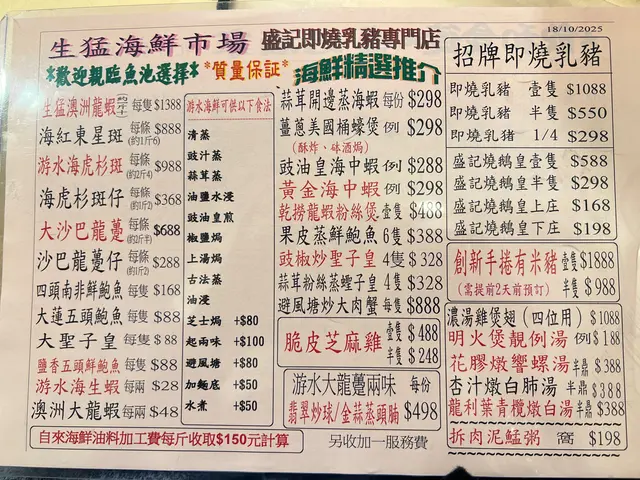 18/10/2025
生猛海鮮市場 盛記即燒乳豬專門店
*歡迎親臨魚池選擇* *質量保証* 海鮮精選推介
生猛澳洲龍蝦 每隻 $1388
海紅東星斑 每條(約1斤6) $888
游水海虎杉斑 每條(約2斤4) $988
海虎杉斑仔 每條(約1斤2) $368
大沙巴龍躉 每條(約2斤半) $688
沙巴龍躉仔 每條(約1斤2) $288
四頭南非鮮鮑魚 每隻 $168
大蓮五頭鮑魚 每隻 $88
大聖子皇 每隻 $88
鹽香五頭鮮鮑魚 每隻 $88
游水海生蝦 每兩 $28
澳洲大龍蝦 每兩 $48
游水海鮮可供以下食法
清蒸
豉汁蒸
蒜茸蒸
油鹽水浸
豉油皇煎
椒鹽焗
上湯焗
古法蒸
油浸
芝士焗 +$80
起兩味 +$100
避風塘 +$80
加麵底 +$50
水煮 +$50
自來海鮮油料加工費每斤收取$150元計算
蒜茸開邊蒸海蝦 每份 $298
薑蔥美國桶蠔煲 例 $298
(酥炸、砵酒焗)
豉油皇海中蝦 例 $288
黃金海中蝦 例 $298
乾撈龍蝦粉絲煲 壹隻 $488
果皮蒸鮮鮑魚 6隻 $388
豉椒炒聖子皇 4隻 $328
蒜茸粉絲蒸蟶子皇 4隻 $328
避風塘炒大肉蟹 每隻 $888
脆皮芝麻雞 壹隻 $488
半隻 $248
游水大龍躉兩味 每份
翡翠炒球/金蒜蒸頭腩 $498
另收加一服務費
招牌即燒乳豬
即燒乳豬 壹隻 $1088
即燒乳豬 半隻 $550
即燒乳豬 1/4 $298
盛記燒鵝皇壹隻 $588
盛記燒鵝皇半隻 $298
盛記燒鵝皇上庄 $168
盛記燒鵝皇下庄 $198
創新手捲有米豬 壹隻 $1888
(需提前2天前預訂) 半隻 $988
濃湯雞煲翅(四位用) $1088
明火煲靚例湯 例 $188
花膠燉響螺湯 半鼎 $388
杏汁燉白肺湯 半鼎 $388
龍利葉青欖燉白湯 半鼎 $388
拆肉泥鯭粥 窩 $198